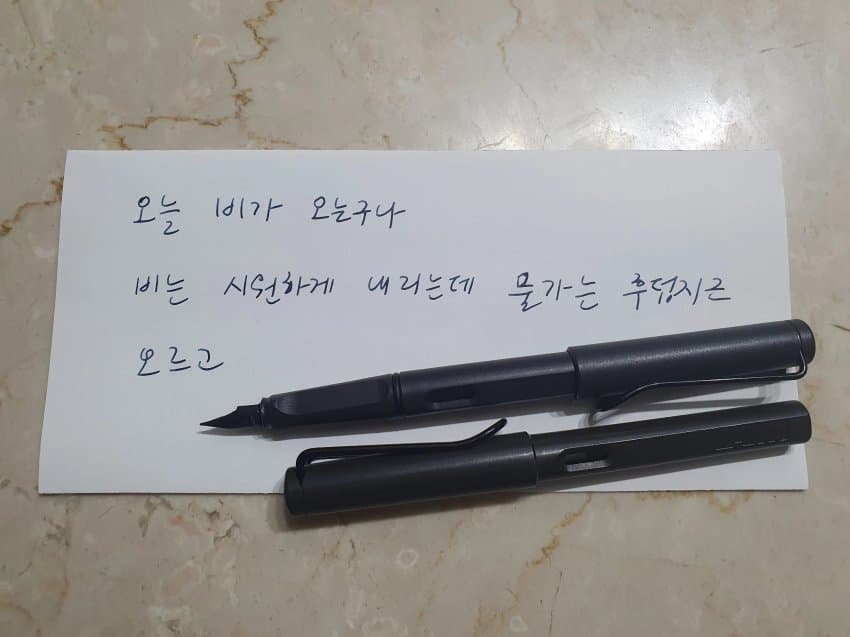 오늘 비가 오는구나
비는 시원하게 내리는데 물가는 후덥지근
오르고